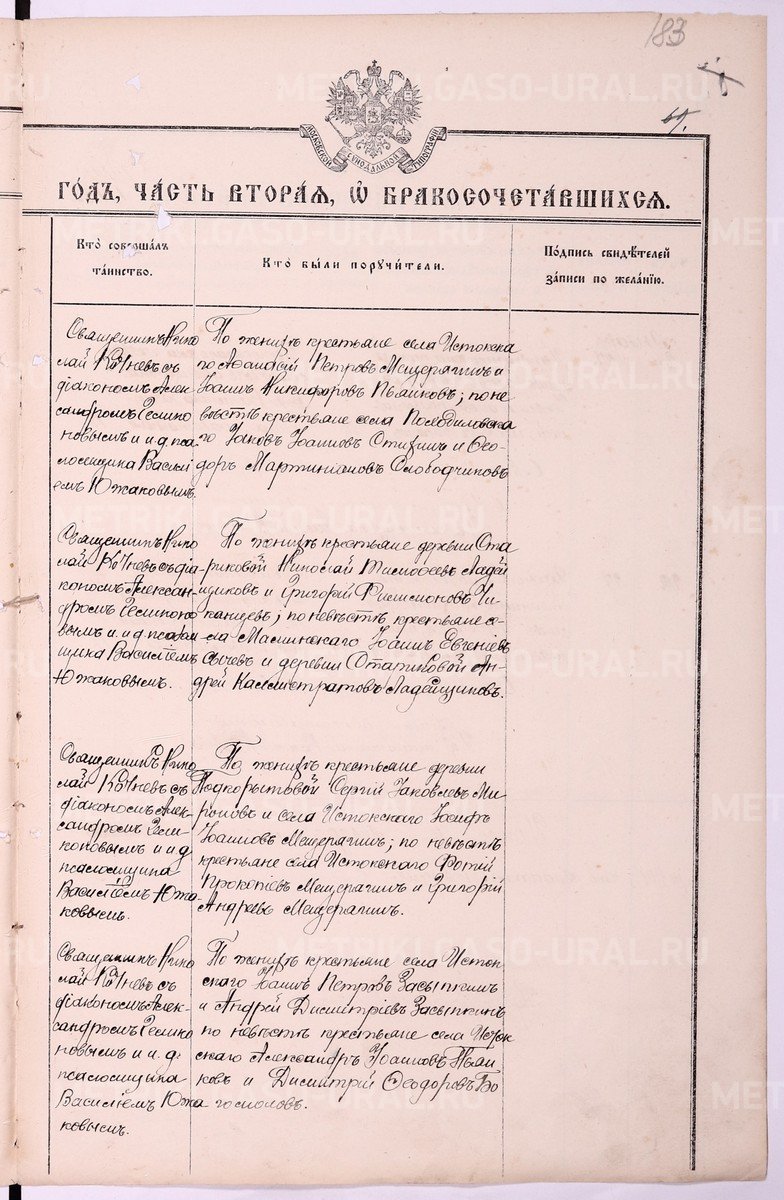 183
МОСКОВСКОЙ СѴНОДАЛЬНОЙ ТИПОГРАФІИ
ГОДЪ, ЧАСТЬ ВТОРАЯ, Ѡ БРАКОСОЧЕТАВШИХСЯ.
Кто совершалъ
таинство.
Кто были поручители.
Подпись свидѣтелей
записи по желанію.
Священникъ Нико
лай Кочневъ съ
діакономъ Алек
сандромъ
новымъ и и. д. пса-
ломщика Васил
емъ Южаковымъ.
По женихѣ крестьяне села Истокска
го Афанасій Петровъ Мещерягинъ и
Іоаннъ Никифоровъ Пьянковъ; по не
вѣстѣ крестьяне села
го Іаковъ Іоанновъ и Ѳео-
доръ Мартиніановъ Слободчиковъ
Священникъ Нико
лай Кочневъ съ діа-
кономъ Алексан
дромъ
вымъ и и. д. псалом
щика Василіемъ
Южаковымъ.
По женихѣ крестьяне деревни Ста
риковой Николай Тимофеевъ Ладей
щиковъ и Григорій Филимоновъ Чи-
канцевъ; по невѣстѣ крестьяне се-
ла Маминскаго Іоаннъ Евгеніевъ
Сычевъ и деревни Стариковой Ан
дрей Каллистратовъ Ладейщиковъ.
Священникъ Нико
лай Кочневъ съ
діакономъ Алек-
сандромъ
коновымъ и и. д.
псаломщика
Василіемъ Южа-
ковымъ.
По женихѣ крестьяне деревни
Подкорытовой Сергій Іаковлевъ Ми
роновъ и села Истокского Іосифъ
Іоанновъ Мещерягинъ; по невѣстѣ
крестьяне села Истокскаго Фотій
Прокопіевъ Мещерягинъ и Григорій
Андреевъ Мещерягинъ.
Священникъ Нико
лай Кочневъ съ
діакономъ Алек-
сандромъ
новымъ и и. д.
псаломщика
Василіемъ Южа
ковымъ.
По женихѣ крестьяне села Исток-
скаго Іоаннъ Петровъ Засыпкинъ
и Андрей Димитріевъ Засыпкинъ
по невѣстѣ крестьяне села Исток
скаго Александръ Іоанновъ Пьян
ковъ и Димитрій Ѳеодоровъ Бо
гомоловъ.